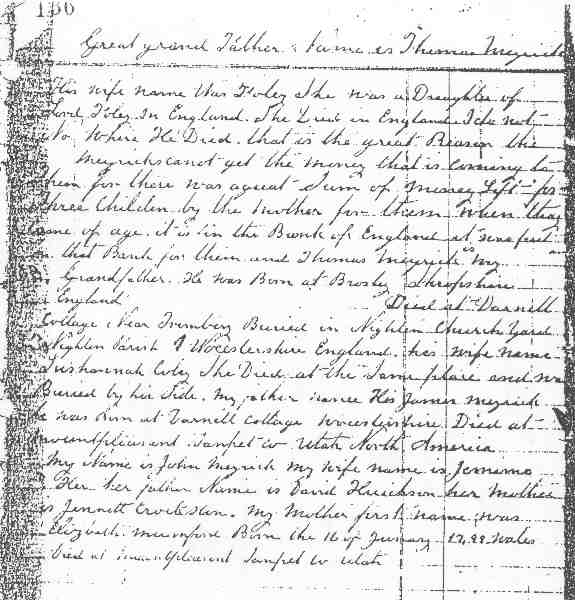 130
Great grand Father. Name is Thomas Meyrick
His wife name Was Foley She was a Daughter of
Lord Foley In England. She Died in England I do not
to Where He Died. that is the great Reason the
Meyricks canot get the money that is Coming to
them for there was a great Sum of Money Left for
three Children by the Mother for them When they
come of age. it is in the Bank of England it was put
in that Bank for them and Thomas Meyrick is my
Grandfather. He was Born at Brosley Shropshire
England Died at Darnell
Cottage Near Buried in Nighten Church Yard
Nighten Parish Wocestershire England. his wife name
Sushannah Coley She Died at the Same place and was
Buried by his Side. My father name Hes James Meyrick
he was Born at Varnell Cottage Worcestershire Died at
mountpleasant Sanpet co Utah North America
My Name is John Meyrick my wife name is Jemema
Her her father Name is David Huchson her Mother
is Jennett My Mother first name was
Elizbath Born the 16 of Jenuary Wales
Died at mountpleasant Sanpet co Utah